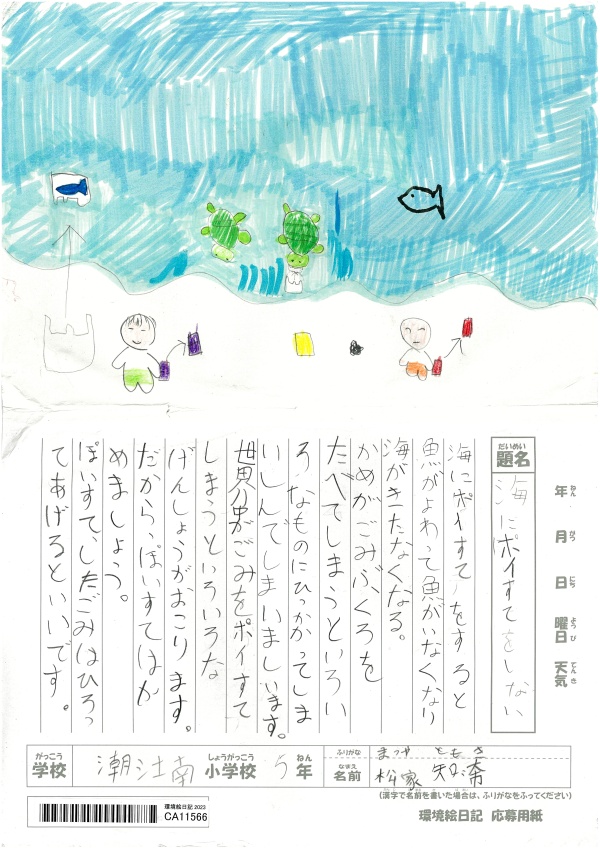 年ねん 月がつ 日にち 曜日ようび 天気てんき
だいめい
題名
海にポイすてをしない
海にポイすてをすると
魚がよわって魚がいなくなり
海がきたなくなる。
かめがごみぶくろを
たべてしまうといろい
ろなものにひっかかってしま
いしんでしまいましいます。
世界中がごみをポイすて
しまうといろいろな
げんしょうがおこります。
だから、ぽいすてはか
めましょう。
ぽいすて、したごみはひろっ
てあげるといいです。
がっこう
学校
潮江南
しょうがっこう
小学校
5
ねん
年
ふりがな
まつや ともき
なまえ
名前
松家 知希
(漢字で名前を書いた場合は、ふりがなをふってください)
環境絵日記2023
CA11566
環境絵日記 応募用紙